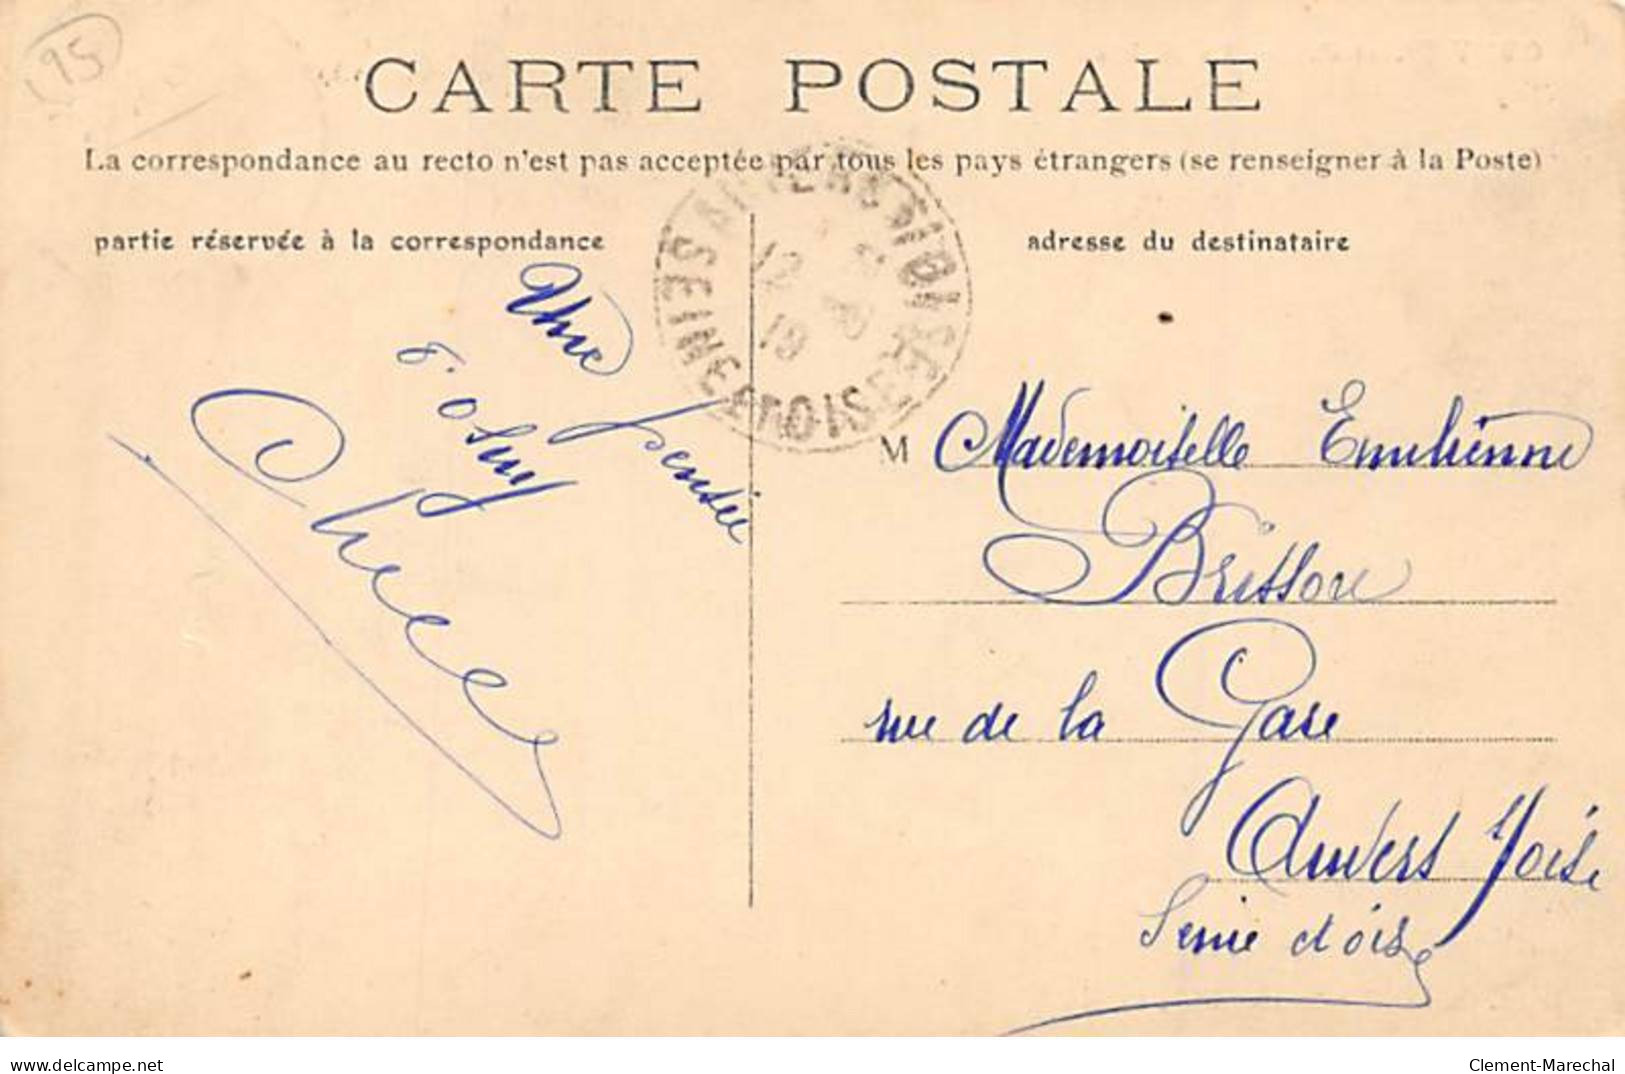 95
CARTE POSTALE
La correspondance au recto n'est pas acceptée par tous les pays étrangers (se renseigner à la Poste)
partie réservée à la correspondance
adresse du destinataire
AUVERS S/OISE
SEINE ET OISE
12
19
Une pensée
d'Osny
M Mademoiselle Emilienne
Brisson
rue de la Gare
Auvers s/oise
Seine et oise
www.delcampe.net
Clement-Marechal